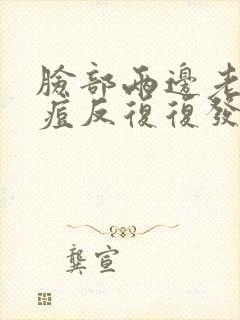 臉部兩邊老
痘反復復發
龔宣